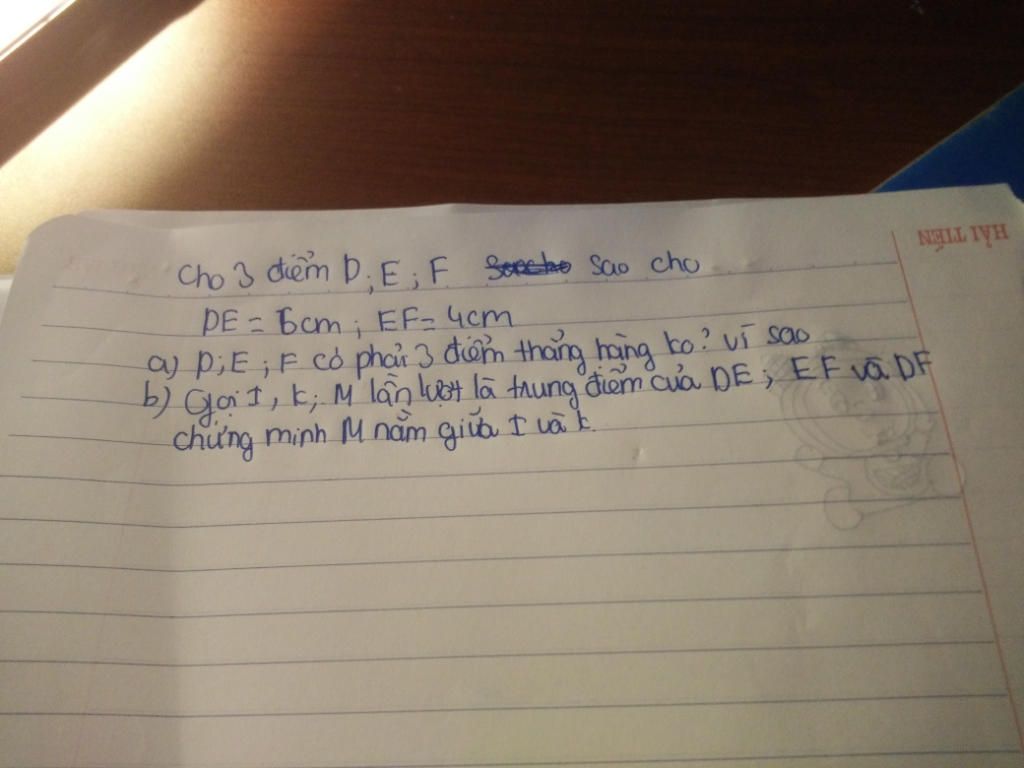 HẢI TIẾN
Cho 3 điểm D; E; F sao cho
DE = 6cm; EF = 4cm
a) D; E; F có phải 3 điểm thẳng hàng ko? vì sao
b) Gọi I, K; M lần lượt là trung điểm của DE; EF và DF
chứng minh M nằm giữa I và K.